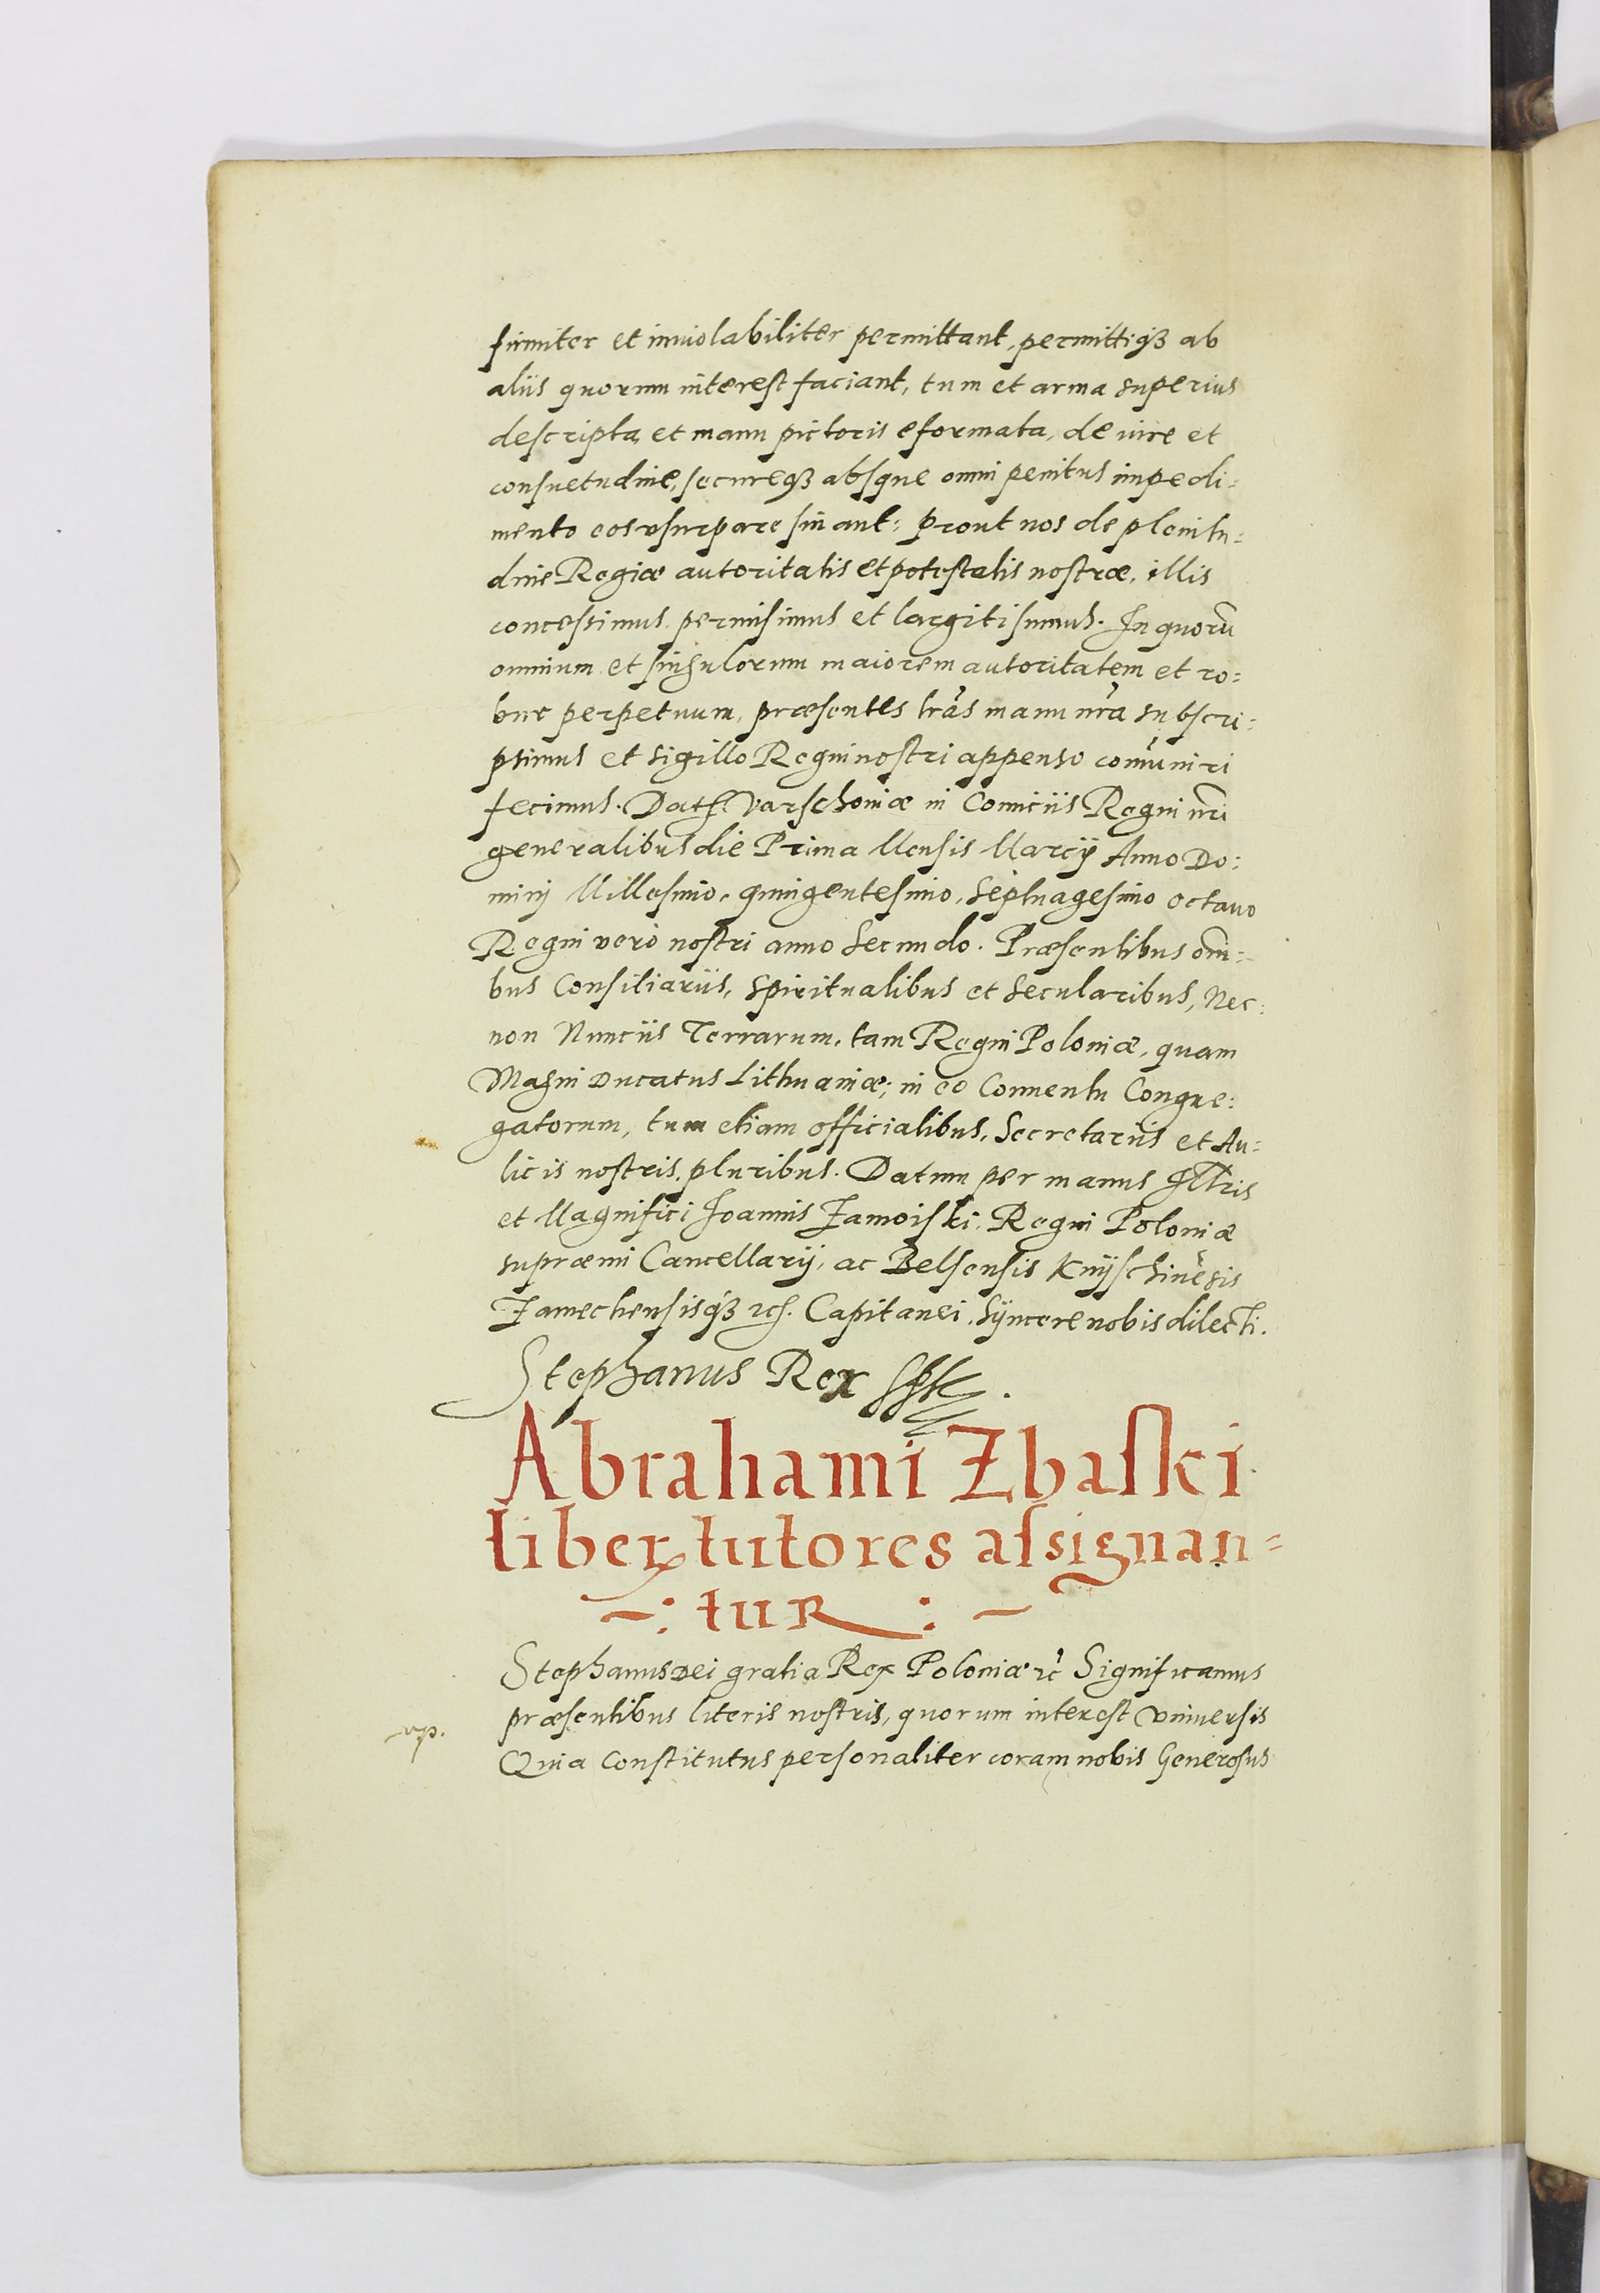 firmiter et inuiolabiliter permittant, permittiq₃ ab
aliis quorum interest faciant, tum et arma superius
descripta et manu pictoris eformata, de iure et
consuetudine, secureq₃ absque omni penitus impedi:
mento eos vsurpare sinant: prout nos de plenitu:
dine Regiæ autoritatis et potestatis nostræ, illis
concessimus permisimus et largiti sumus. In quorū
omnium et singulorum maiorem autoritatem et ro:
bur perpetuum, præsentes lr̃as manu nr̃a subscri:
psimus et sigillo Regni nostri appenso com̃uniri
fecimus. Dat. Varschouiæ in Comiciis Regni nr̃i
generalibus die Prima Mensis Marcij Anno Do:
minj Millesimo, quingentesimo, Septuagesimo octauo
Regni verò nostri anno Secundo. Præsentibus om̃i:
bus Consiliariis, Spiritualibus et Secularibus, Nec:
non Nunciis Terrarum, tam Regni Poloniæ, quam
Magni Ducatus Lithuaniæ; in eo Conuentu Congre:
gatorum, tum etiam officialibus, Secretariis et Au:
licis nostris, pluribus. Datum per manus Ill̃ris
et Magnifici Joannis Zamoiski, Regni Poloniæ
supræmi Cancellarij, ac Belsensis Knijschinẽsis
Zamechensisq₃ ꝛc. Capitanei, Syncere nobis dilecti.
Stephanus Rex sst.
Abrahami Zbaſki
liberꝝ tutores aſsignan=
~: tur : ~
Stephanus Dei gratia Rex Poloniæ ꝛc̃ Significamus
præsentibus literis nostris, quorum interest vniuersis
Quia Constitutus personaliter coram nobis Generosus